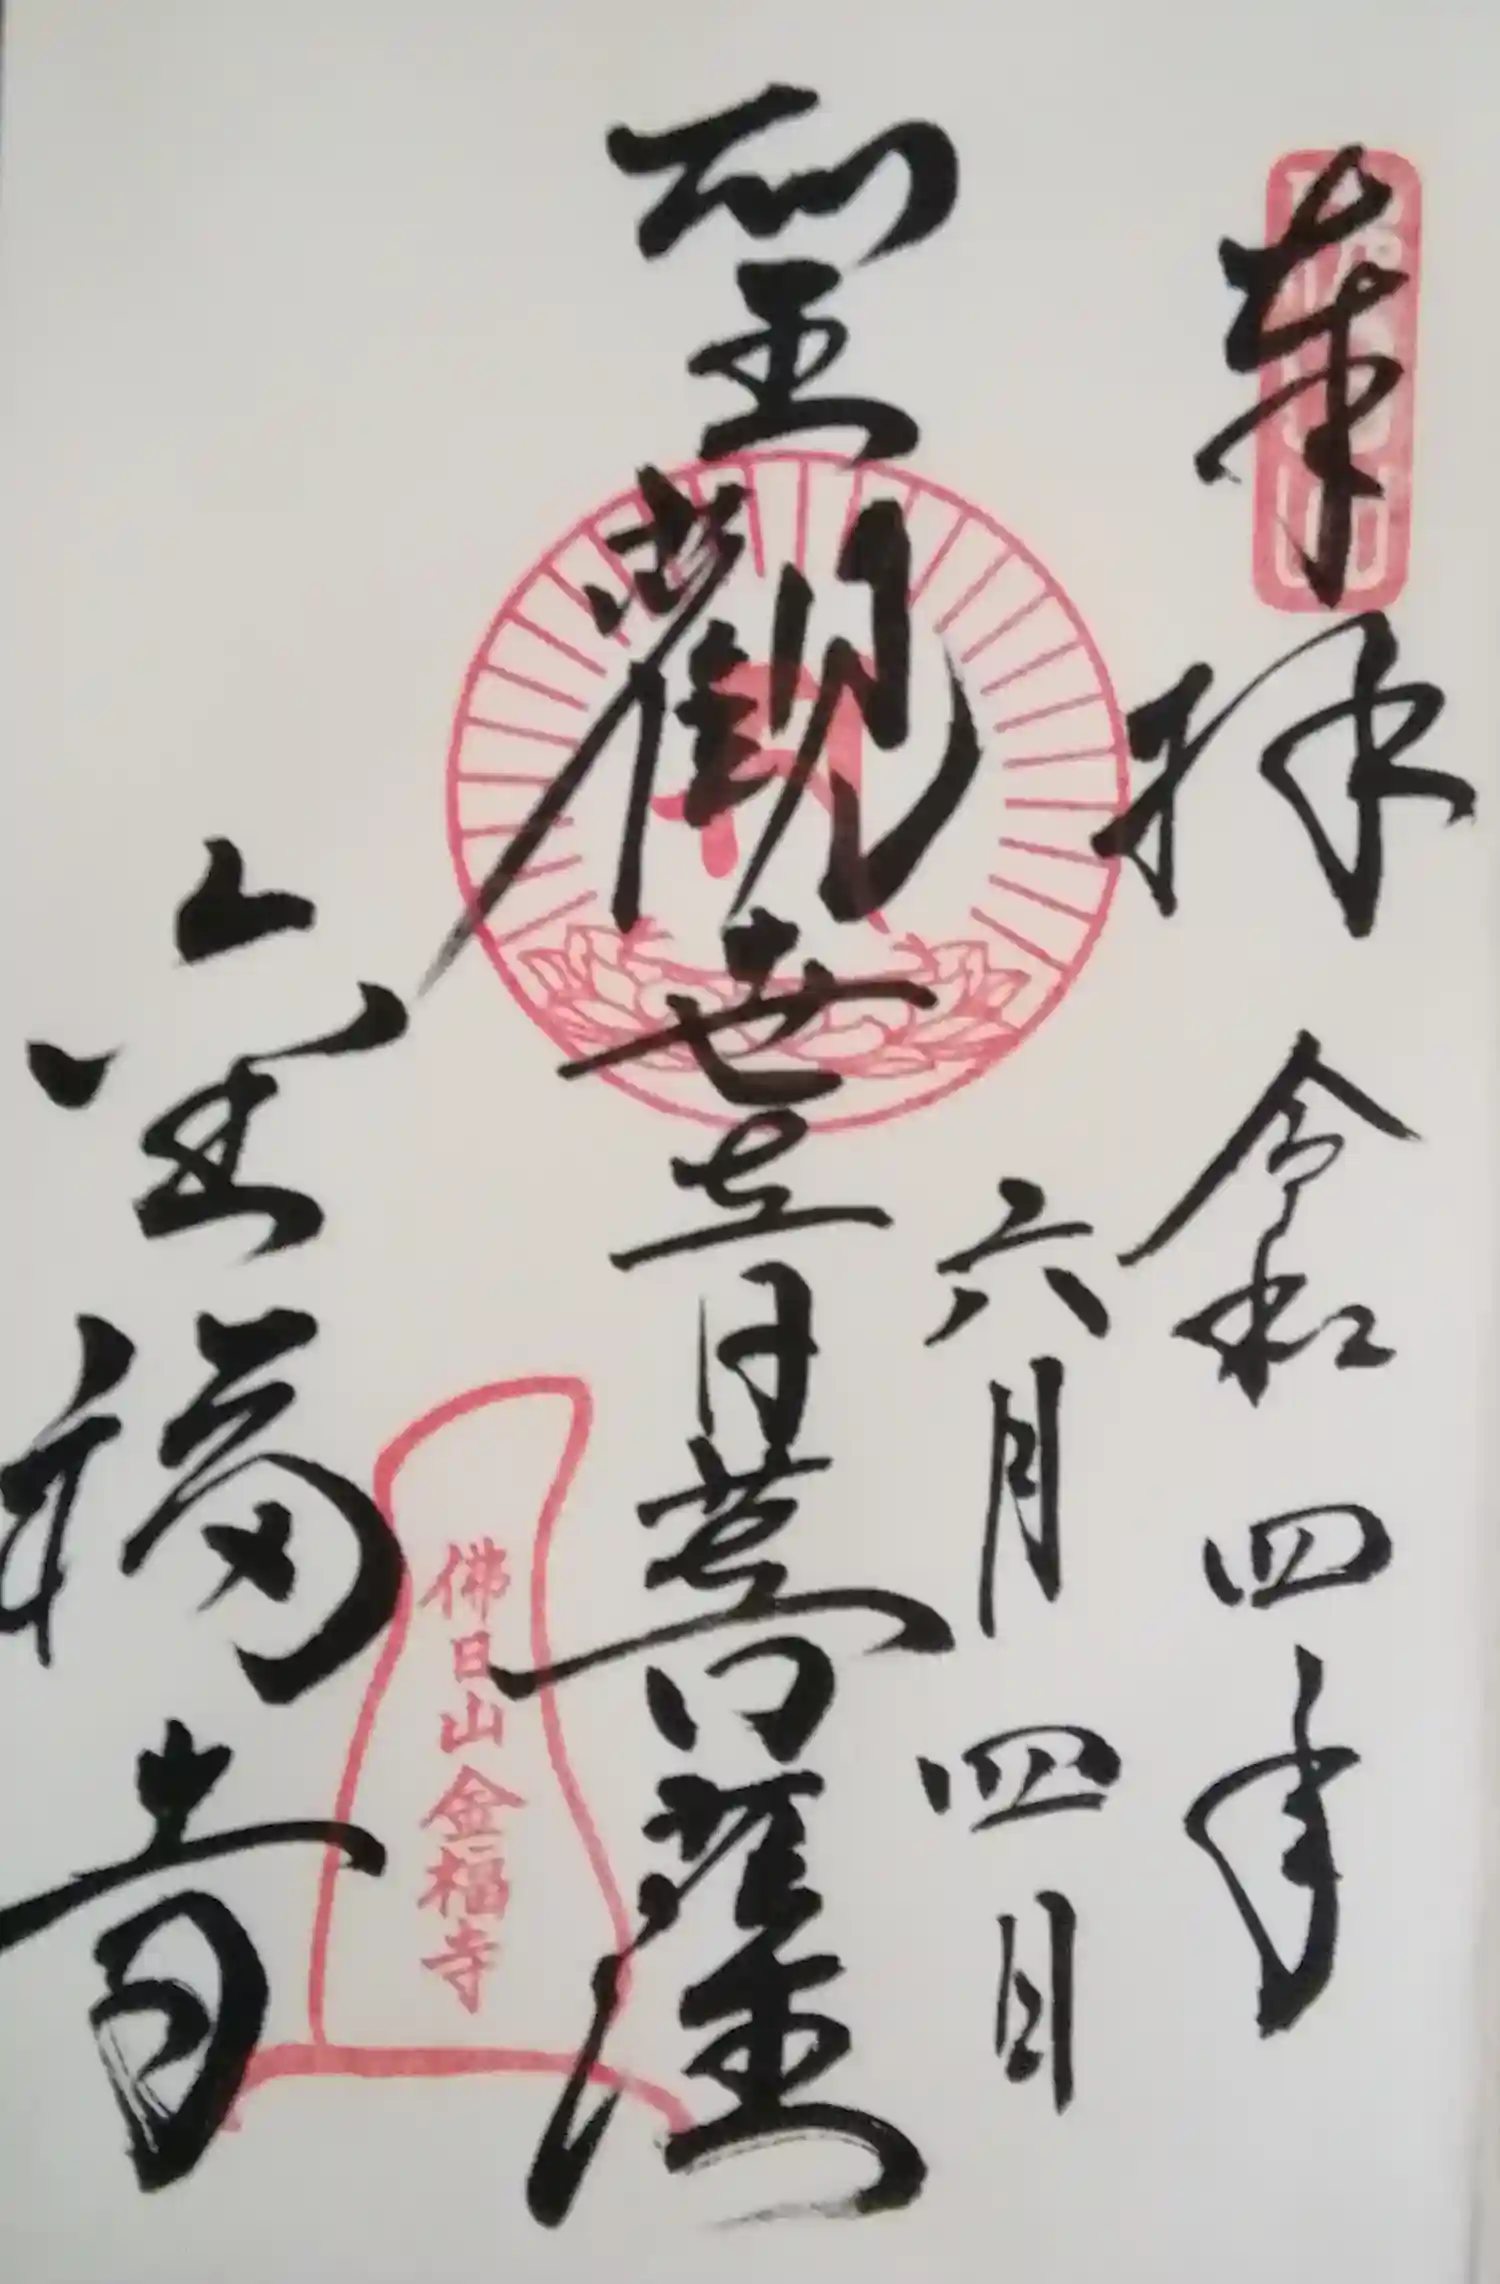 奉拝
令和四年
六月四日
聖観世音菩薩
佛日山金福寺
金福寺